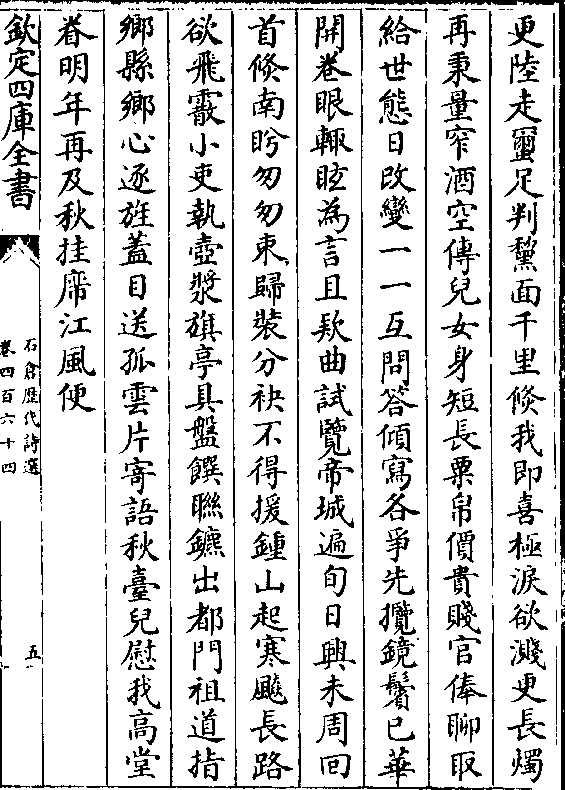 更陸走蠒足判黧面千里候我即喜極淚欲濺更長燭
再秉量窄酒空傳兒女身短長粟帛價貴賤官俸聊取
給世態日改變一一互問答傾寫各爭先攬鏡鬢已華
開卷眼輒眩為言且欵曲試覽帝城遍旬日興未周回
首倐南眄匆匆東歸裝分袂不得援鍾山起寒飈長路
欲飛霰小吏執壺漿旗亭具盤饌聯鑣出都門祖道指
鄉縣鄉心逐旌蓋目送孤雲片寄語秋臺兒慰我高堂
眷明年再及秋挂席江風便
欽定四庫全書
石倉歷代詩選
卷四百六十四
五